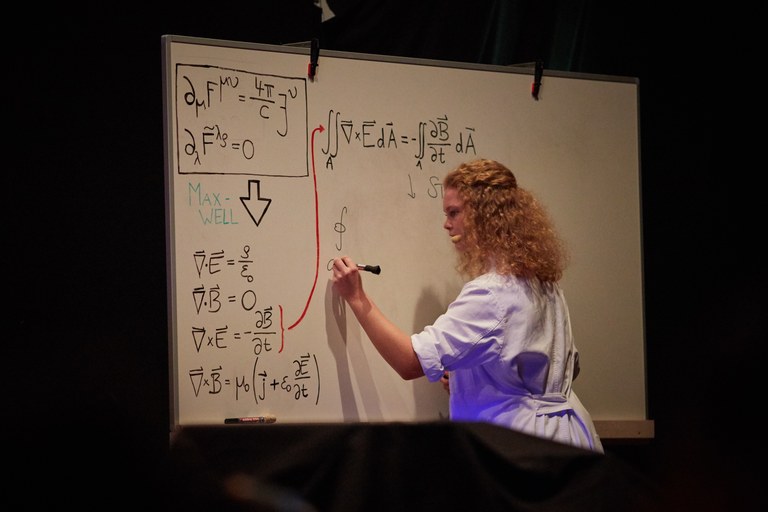 ∂_μ F^{μν} = 4π/c j^ν
∂_λ F̃^{λρ} = 0
MAX-
WELL
∇⃗·E⃗ = ρ/ε₀
∇⃗·B⃗ = 0
∇⃗×E⃗ = -∂B⃗/∂t
∇⃗×B⃗ = μ₀(j⃗ + ε₀ ∂E⃗/∂t)
∬_A ∇⃗×E⃗ dA⃗ = -∬_A ∂B⃗/∂t dA⃗
↓ ST
∮